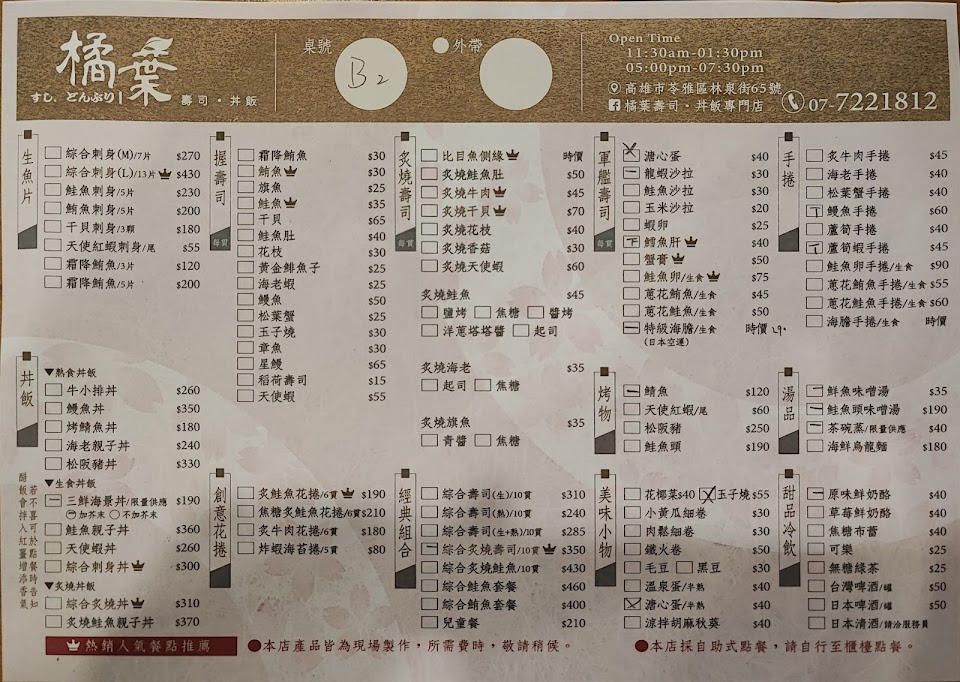 橘葉
すし、どんぶり 壽司・丼飯
桌號
B2
外帶
Open Time
11:30am-01:30pm
05:00pm-07:30pm
高雄市苓雅區林泉街65號
橘葉壽司・丼飯專門店
07-7221812
生魚片
綜合刺身(M)/7片 $270
綜合刺身(L)/13片 $430
鮭魚刺身/5片 $230
鮪魚刺身/5片 $200
干貝刺身/3顆 $180
天使紅蝦刺身/尾 $55
霜降鮪魚/3片 $120
霜降鮪魚/5片 $200
丼飯
▼熱食丼飯
牛小排丼 $260
鰻魚丼 $350
烤鯖魚丼 $180
海老親子丼 $240
松阪豬丼 $330
▼生食丼飯
三鮮海景丼/限量供應 $190
加芥末 不加芥末
鮭魚親子丼 $360
天使蝦丼 $260
綜合刺身丼 $300
▼炙燒丼飯
綜合炙燒丼 $310
炙燒鮭魚親子丼 $370
若不喜於點餐時告知
醋飯會拌入紅薑增添香氣
握壽司
每貫
霜降鮪魚 $30
鮪魚 $30
旗魚 $25
鮭魚 $35
干貝 $65
鮭魚肚 $40
花枝 $30
黃金鯡魚子 $25
海老蝦 $25
鰻魚 $50
松葉蟹 $25
玉子燒 $30
章魚 $30
星鰻 $65
稻荷壽司 $15
天使蝦 $55
創意花捲
炙鮭魚花捲/6貫 $190
焦糖炙鮭魚花捲/6貫 $210
炙牛肉花捲/6貫 $180
炸蝦海苔捲/5貫 $80
炙燒壽司
每貫
比目魚側緣 時價
炙燒鮭魚肚 $50
炙燒牛肉 $45
炙燒干貝 $70
炙燒花枝 $40
炙燒香菇 $30
炙燒天使蝦 $60
炙燒鮭魚 $45
鹽烤 焦糖 醬烤
洋蔥塔塔醬 起司
炙燒海老 $35
起司 焦糖
炙燒旗魚 $35
青醬 焦糖
經典組合
綜合壽司(生)/10貫 $310
綜合壽司(熟)/10貫 $240
綜合壽司(生+熟)/10貫 $285
綜合炙燒壽司/10貫 $350
綜合炙燒鮭魚/10貫 $430
綜合鮭魚套餐 $460
綜合鮪魚套餐 $400
兒童餐 $210
軍艦壽司
每貫
溏心蛋 $40
龍蝦沙拉 $30
鮭魚沙拉 $30
玉米沙拉 $20
蝦卵 $25
鱈魚肝 $40
蟹膏 $50
鮭魚卵/生食 $75
蔥花鮪魚/生食 $45
蔥花鮭魚/生食 $50
特級海膽/生食 時價 290
(日本空運)
烤物
鯖魚 $120
天使紅蝦/尾 $60
松阪豬 $250
鮭魚頭 $190
美味小物
花椰菜$40 玉子燒$55
小黃瓜細卷 $30
肉鬆細卷 $30
鐵火卷 $50
毛豆 黑豆 $30
溫泉蛋/半熟 $40
溏心蛋/半熟 $40
涼拌胡麻秋葵 $40
手捲
炙牛肉手捲 $45
海老手捲 $40
松葉蟹手捲 $40
鰻魚手捲 $60
蘆筍手捲 $40
蘆筍蝦手捲 $45
鮭魚卵手捲/生食 $90
蔥花鮪魚手捲/生食 $55
蔥花鮭魚手捲/生食 $60
海膽手捲/生食 時價
湯品
鮮魚味噌湯 $35
鮭魚頭味噌湯 $190
茶碗蒸/限量供應 $40
海鮮烏龍麵 $180
甜品冷飲
原味鮮奶酪 $40
草莓鮮奶酪 $40
焦糖布蕾 $40
可樂 $25
無糖綠茶 $25
台灣啤酒/罐 $50
日本啤酒/罐 $50
日本清酒/請洽服務員
熱銷人氣餐點推薦
●本店產品皆為現場製作，所需費時，敬請稍候。
●本店採自助式點餐，請自行至櫃檯點餐。